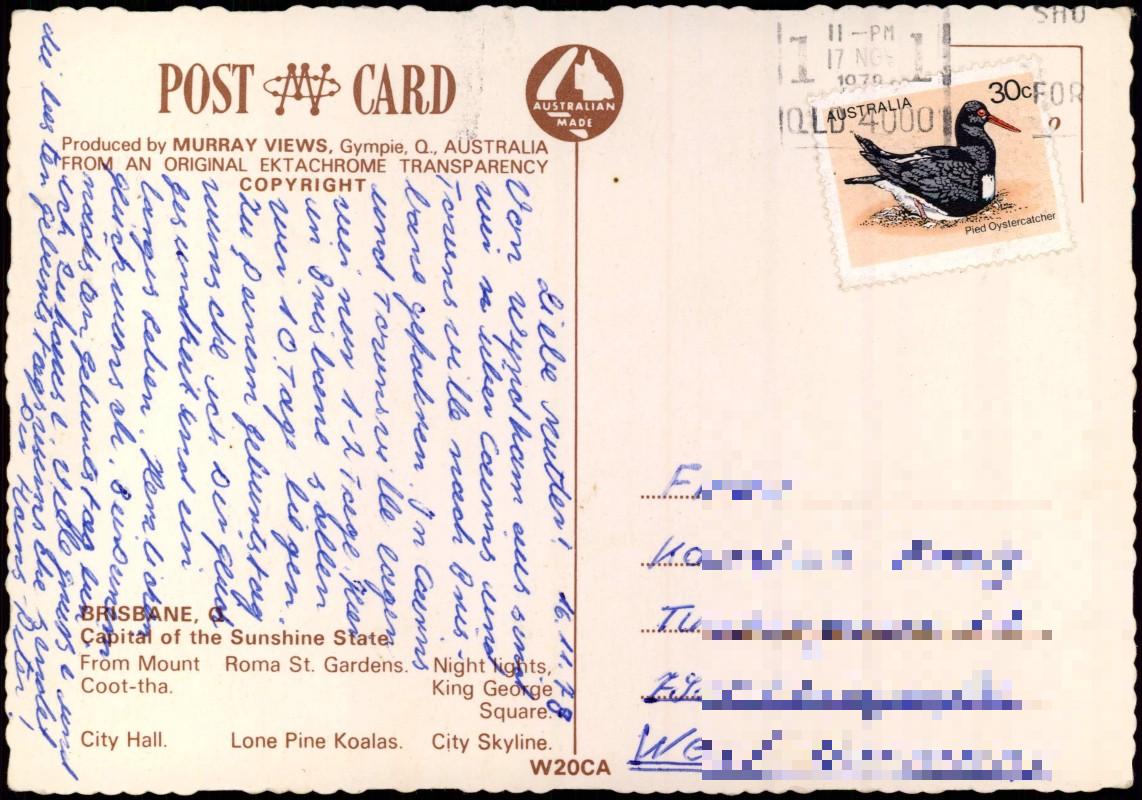 POST CARD
AUSTRALIAN
MADE
Produced by MURRAY VIEWS, Gympie, Q., AUSTRALIA
FROM AN ORIGINAL EKTACHROME TRANSPARENCY
COPYRIGHT
SHO
11-PM
17 NOV
1978
1 1
FOR
QLD 4000
AUSTRALIA
30c
Pied Oystercatcher
16.11.78
Liebe Mutter!
Von Wyndham aus sind
wir über Cairns und
Townsville nach Bris-
bane gefahren. In Cairns
und Townsville lagen
wir nur 1-2 Tage. Hier
in Brisbane sollen
wir 10 Tage liegen.
Zu Deinem Geburtstag
wünsche ich Dir
Gesundheit und ein
langes Leben. Herzlichen
Glückwunsch.
nächsten Geburtstag
ich zuhause. Viele Grüsse und
die besten Geburtstagswünsche sendet
Dir Hans-Peter!
BRISBANE, Q.
Capital of the Sunshine State.
From Mount Coot-tha.
Roma St. Gardens.
Night lights, King George Square.
City Hall.
Lone Pine Koalas.
City Skyline.
W20CA